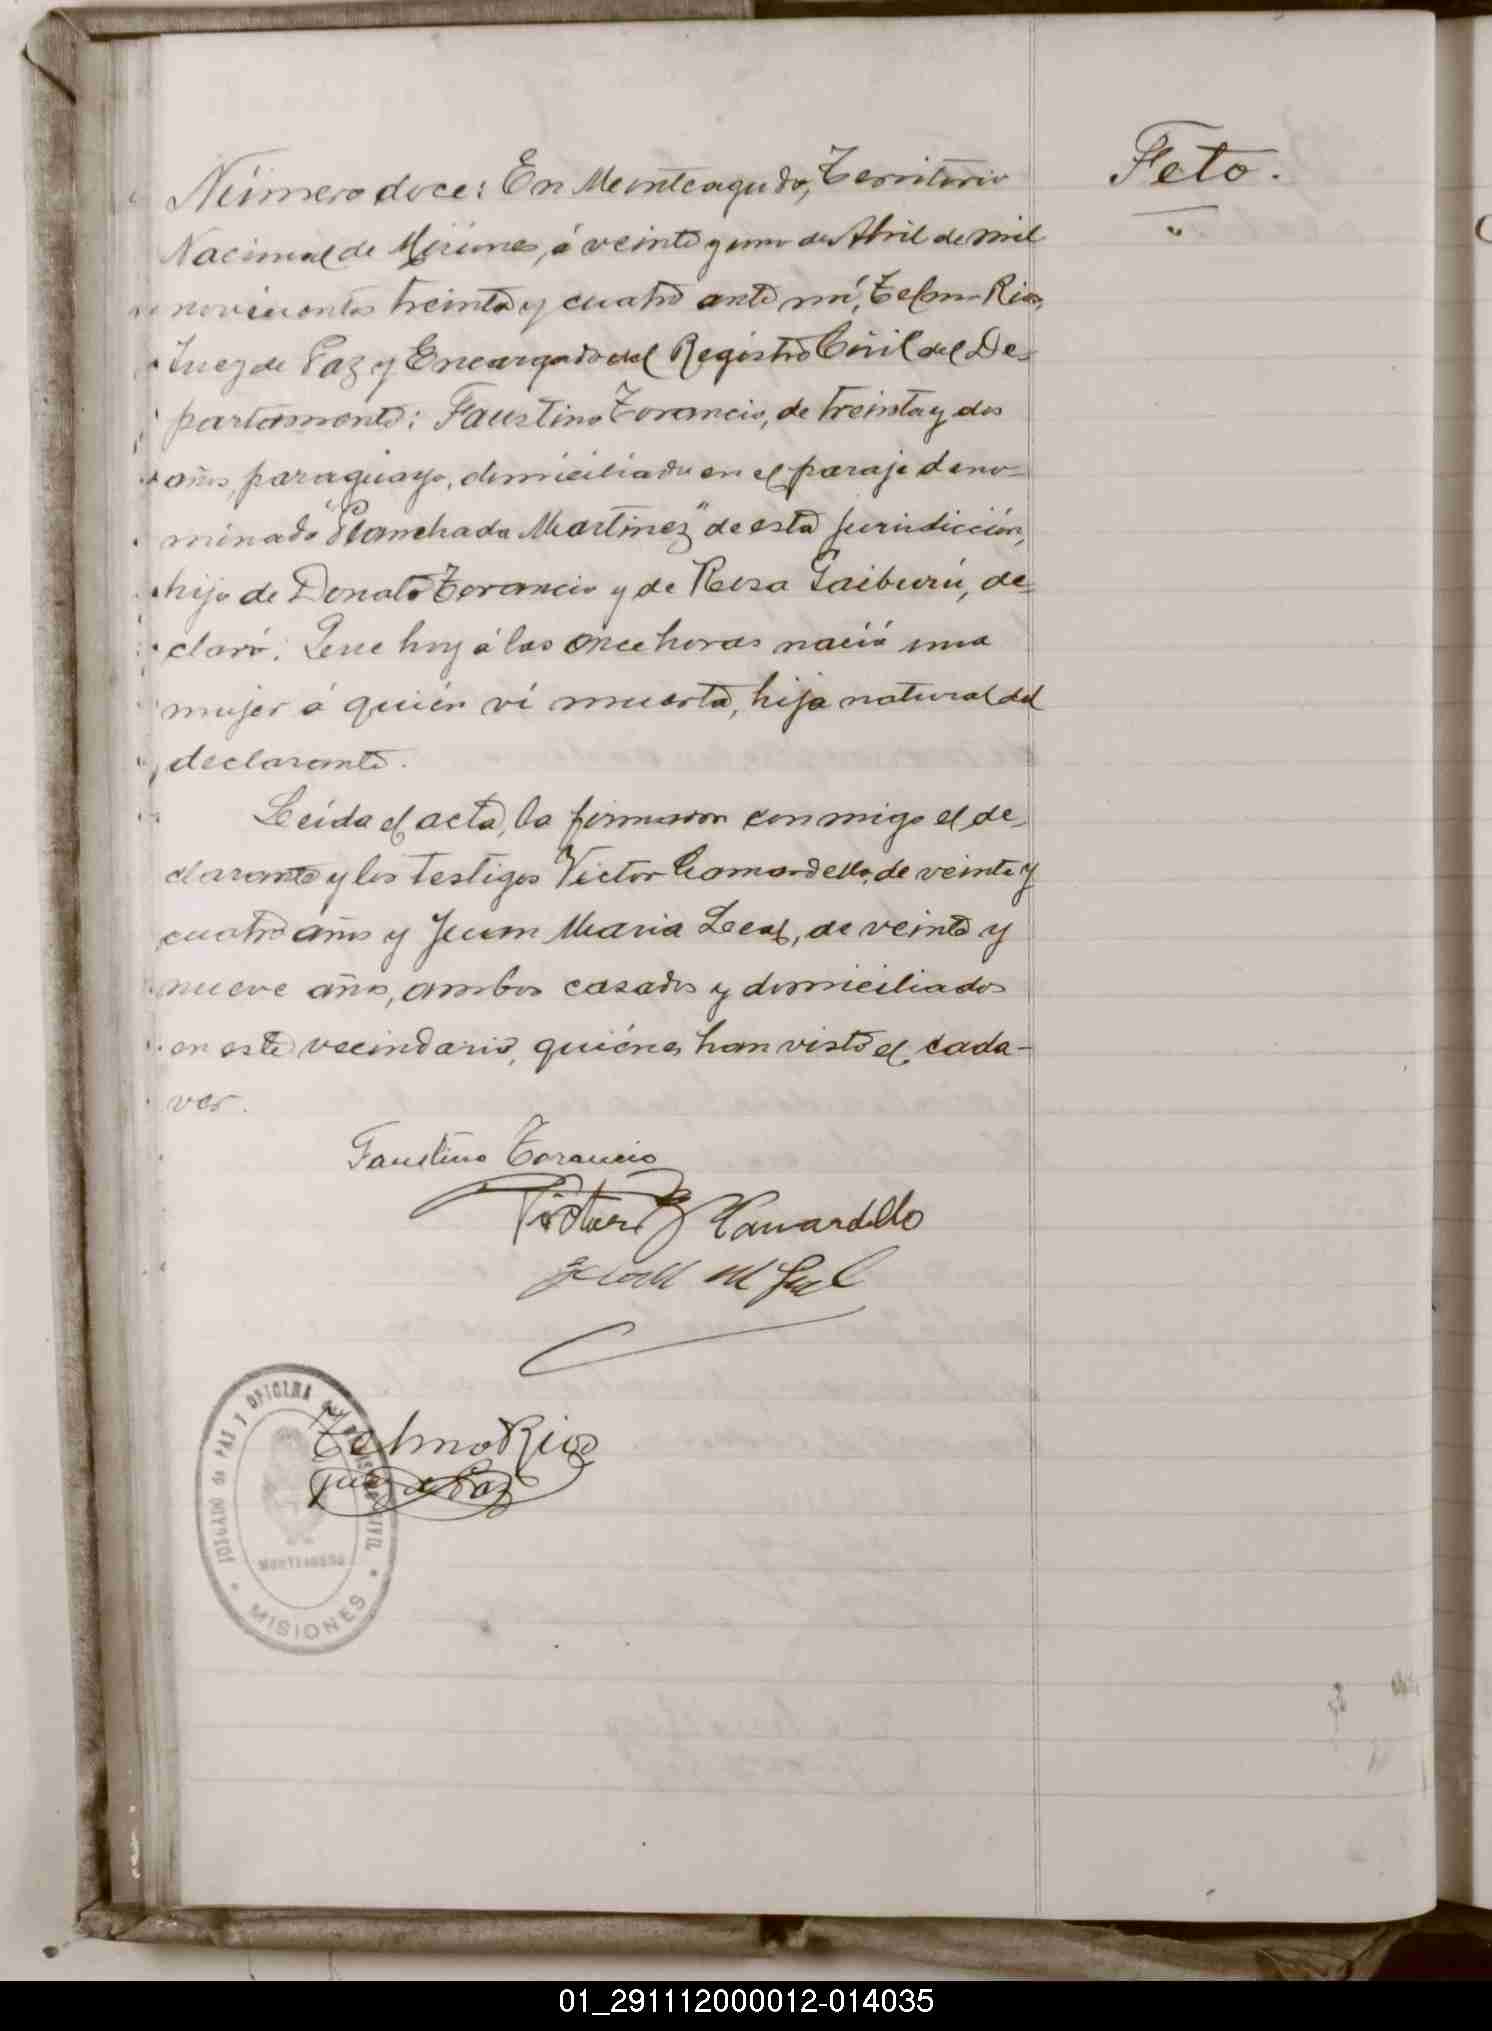 Número doce: En Monteagudo, Territorio
Nacional de Misiones, á veinte y uno de Abril de mil
novecientos treinta y cuatro ante mí, Telmo Rios,
Juez de Paz y Encargado del Registro Civil del De=
partamento: Faustino Torancio, de treinta y dos
años, paraguayo, domiciliado en el paraje deno=
minado "Planchada Martinez" de esta jurisdicción,
hijo de Donato Torancio y de Rosa Taiburú, de=
claró: Que hoy á las once horas nació una
mujer á quién ví muerta, hija natural del
declarante.
Leída el acta, la firmaron conmigo el de=
clarante y los testigos Victor Camardello, de veinte y
cuatro años y Juan Maria Leal, de veinte y
nueve años, ambos casados y domiciliados
en este vecindario, quiénes han visto el cada-
ver.
Faustino Torancio
Victor Camardello
Telmo Rios
Juez de Paz
JUZGADO de PAZ Y OFICINA del REGISTRO CIVIL
MONTEAGUDO
MISIONES
Feto.
"
01_291112000012-014035